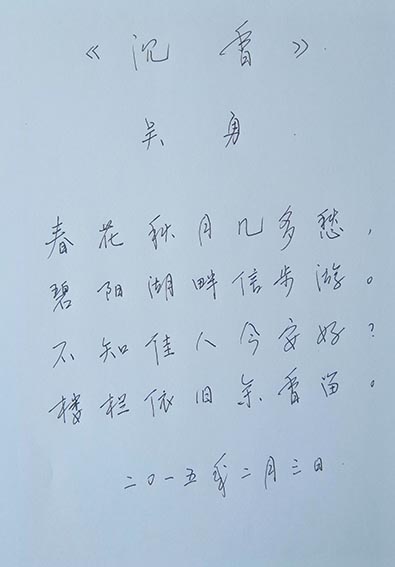 《沉香》.
吴勇
春花秋月几多愁，
碧阳湖畔信步游。
不知佳人今安好？
楼栏依旧余香留。
二〇一五年二月三日.